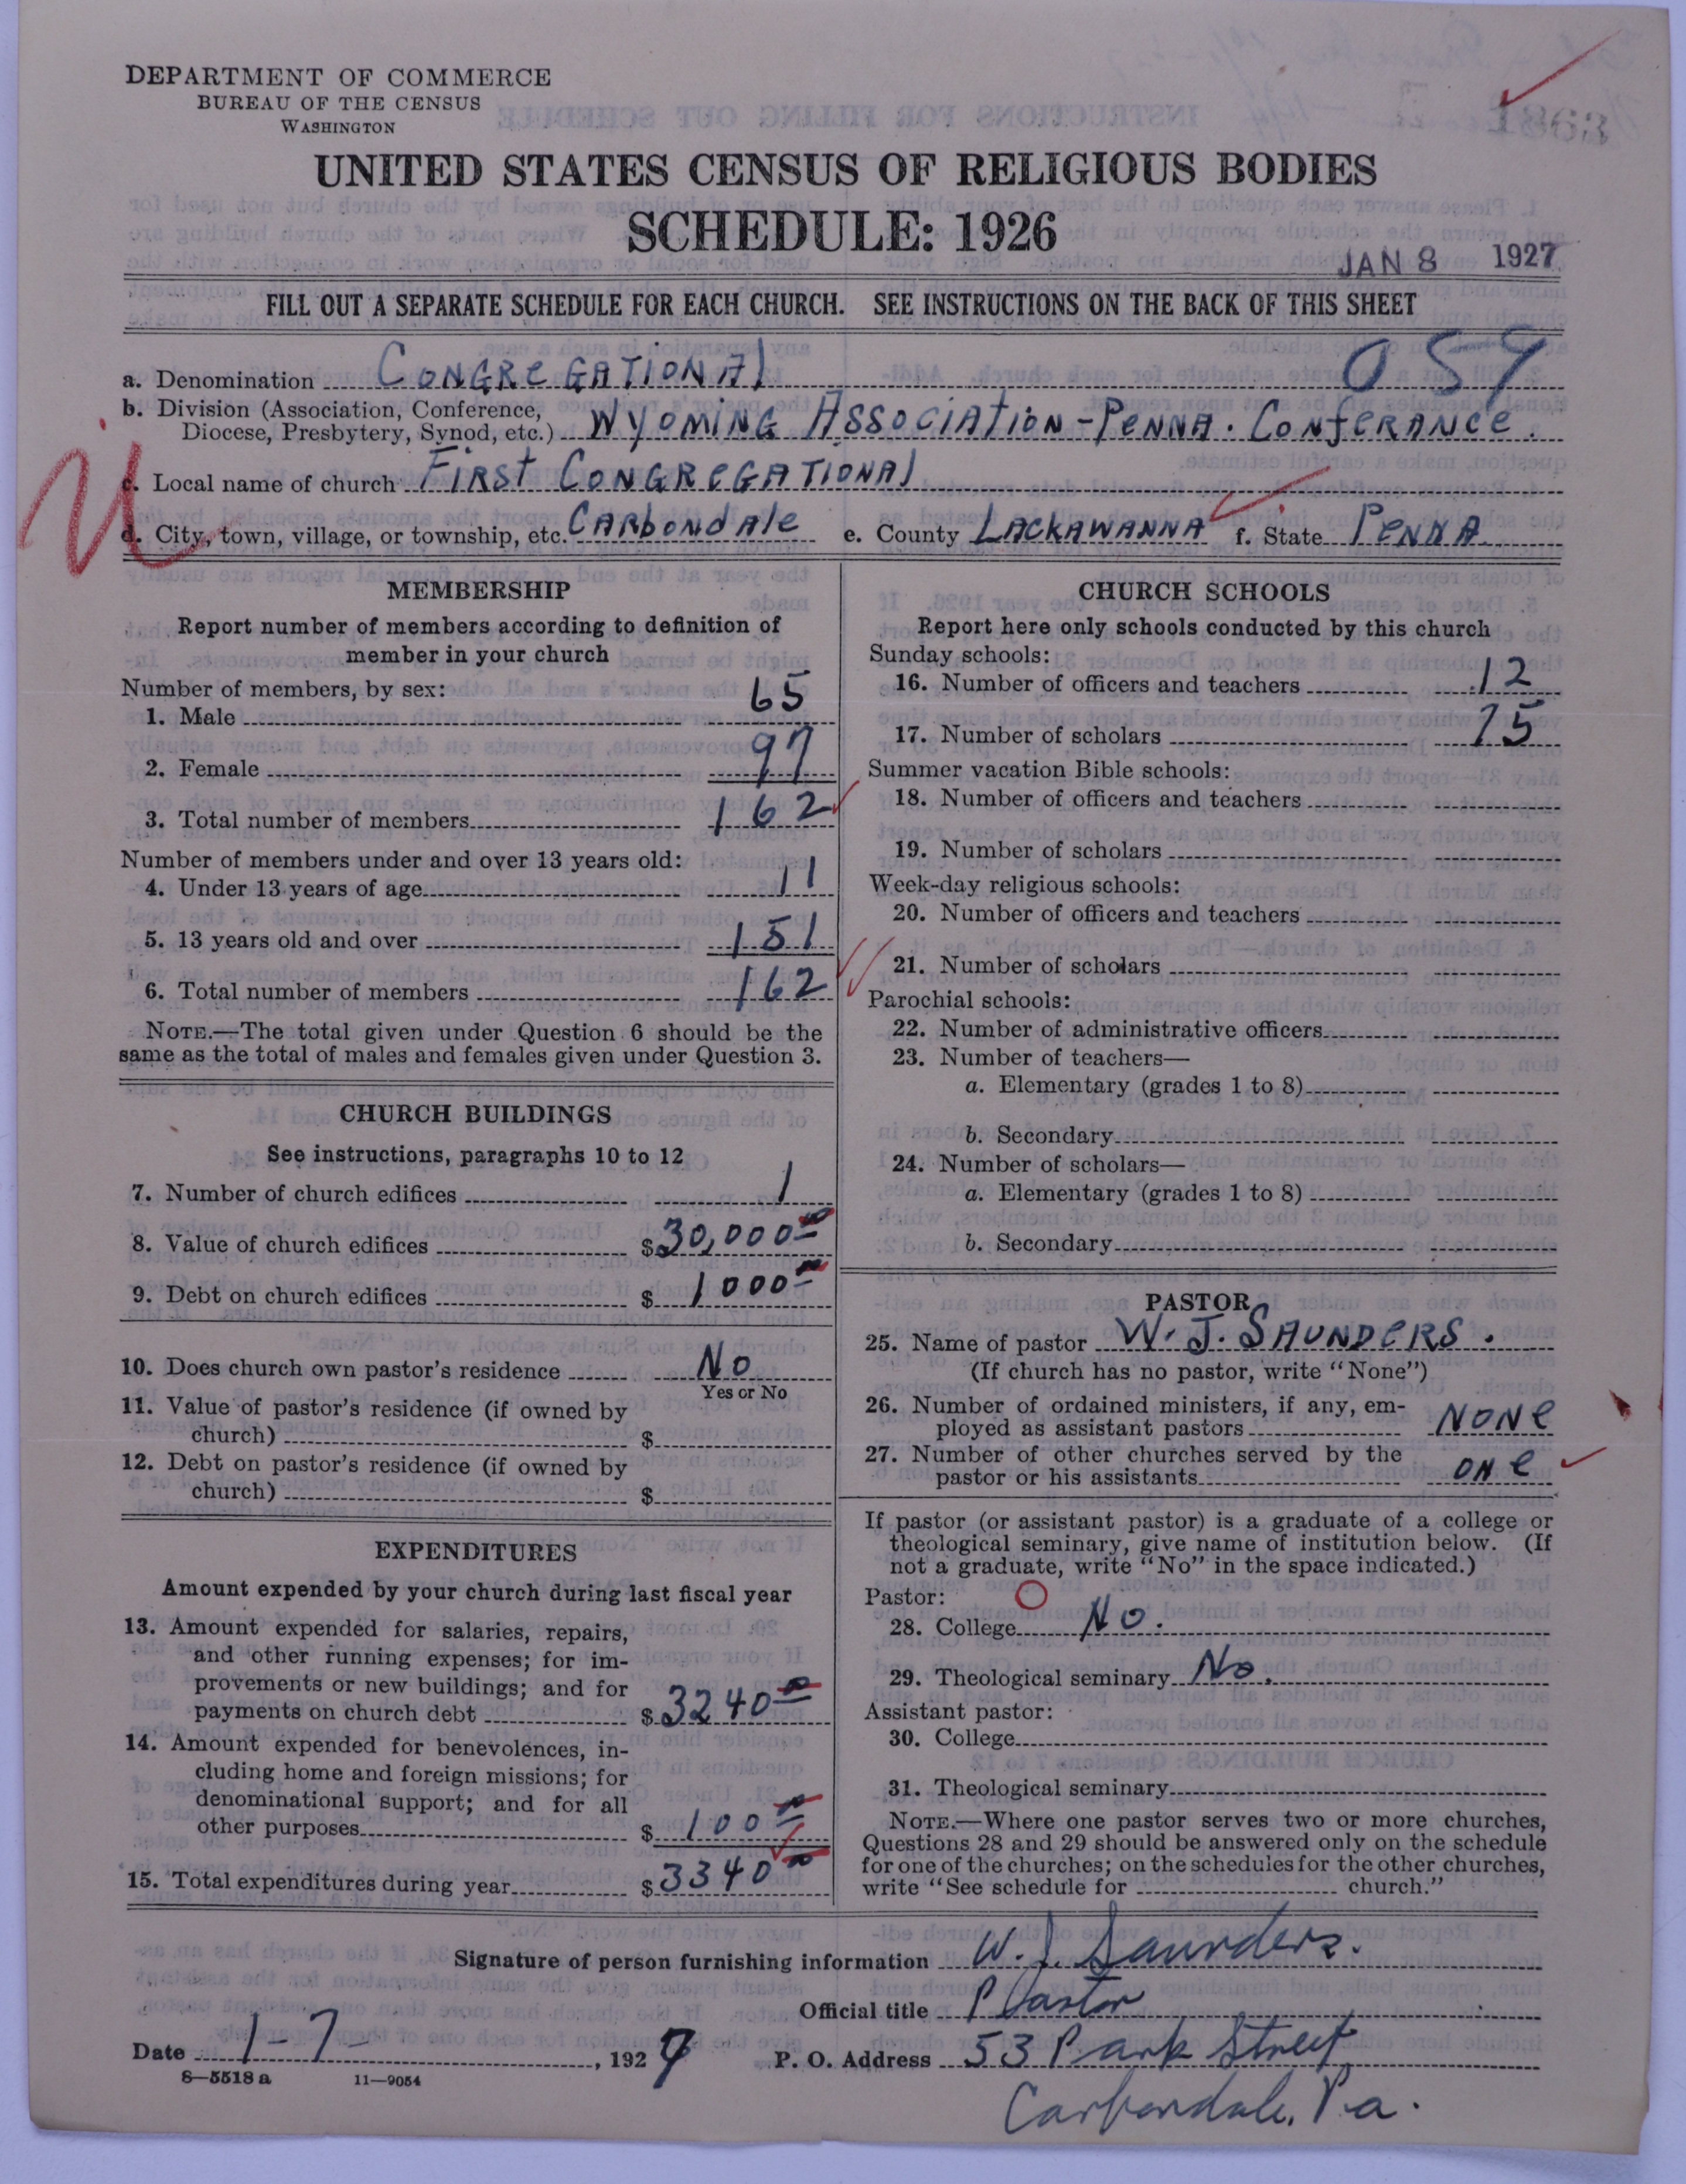 DEPARTMENT OF COMMERCE
BUREAU OF THE CENSUS
WASHINGTON
1863
UNITED STATES CENSUS OF RELIGIOUS BODIES
SCHEDULE: 1926
JAN 8 1927
FILL OUT A SEPARATE SCHEDULE FOR EACH CHURCH. SEE INSTRUCTIONS ON THE BACK OF THIS SHEET
a. Denomination CONGREGATIONAL
b. Division (Association, Conference,
Diocese, Presbytery, Synod, etc.) WYOMING ASSOCIATION - PENNA. CONFERANCE.
c. Local name of church FIRST CONGREGATIONAL
d. City, town, village, or township, etc. CARBONDALE e. County LACKAWANNA f. State PENNA.
MEMBERSHIP
Report number of members according to definition of
member in your church
Number of members, by sex:
1. Male 65
2. Female 97
3. Total number of members 162
Number of members under and over 13 years old:
4. Under 13 years of age 11
5. 13 years old and over 151
6. Total number of members 162
NOTE.—The total given under Question 6 should be the
same as the total of males and females given under Question 3.
CHURCH BUILDINGS
See instructions, paragraphs 10 to 12
7. Number of church edifices 1
8. Value of church edifices $30,000 00
9. Debt on church edifices $ 1000 00
10. Does church own pastor's residence No
Yes or No
11. Value of pastor's residence (if owned by
church) $
12. Debt on pastor's residence (if owned by
church) $
EXPENDITURES
Amount expended by your church during last fiscal year
13. Amount expended for salaries, repairs,
and other running expenses; for im-
provements or new buildings; and for
payments on church debt $ 3240 00
14. Amount expended for benevolences, in-
cluding home and foreign missions; for
denominational support; and for all
other purposes $ 100 00
15. Total expenditures during year $ 3340 00
CHURCH SCHOOLS
Report here only schools conducted by this church
Sunday schools:
16. Number of officers and teachers 12
17. Number of scholars 75
Summer vacation Bible schools:
18. Number of officers and teachers
19. Number of scholars
Week-day religious schools:
20. Number of officers and teachers
21. Number of scholars
Parochial schools:
22. Number of administrative officers
23. Number of teachers—
a. Elementary (grades 1 to 8)
b. Secondary
24. Number of scholars—
a. Elementary (grades 1 to 8)
b. Secondary
PASTOR
25. Name of pastor W. J. SAUNDERS.
(If church has no pastor, write "None")
26. Number of ordained ministers, if any, em-
ployed as assistant pastors NONE
27. Number of other churches served by the
pastor or his assistants ONE
If pastor (or assistant pastor) is a graduate of a college or
theological seminary, give name of institution below. (If
not a graduate, write "No" in the space indicated.)
Pastor:
28. College No.
29. Theological seminary No.
Assistant pastor:
30. College
31. Theological seminary
NOTE.—Where one pastor serves two or more churches,
Questions 28 and 29 should be answered only on the schedule
for one of the churches; on the schedules for the other churches,
write "See schedule for church."
Signature of person furnishing information W. J. Saunders.
Official title Pastor
Date 1-7-, 1927 P. O. Address 53 Park Street
8—5518 a 11—9054
Carbondale, Pa.